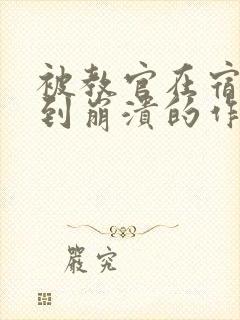 被教官在宿
到崩溃的作
严究